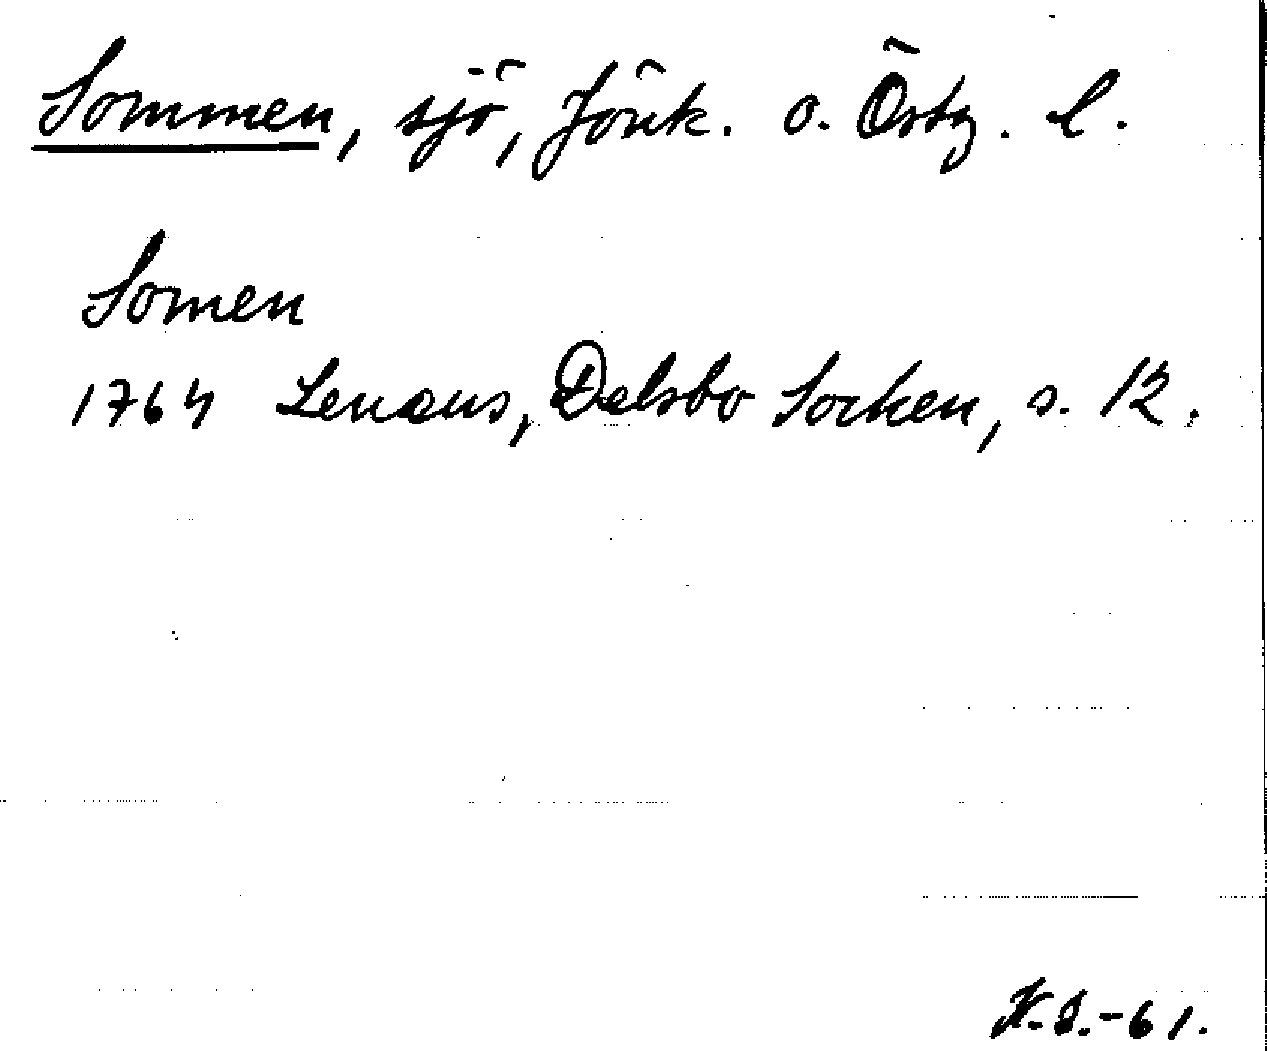 Sommen, sjö, Jönk. o. Östg. l.
Somen
1764 Lenæus, Delsbo Socken, s. 12.
H.S.-61.